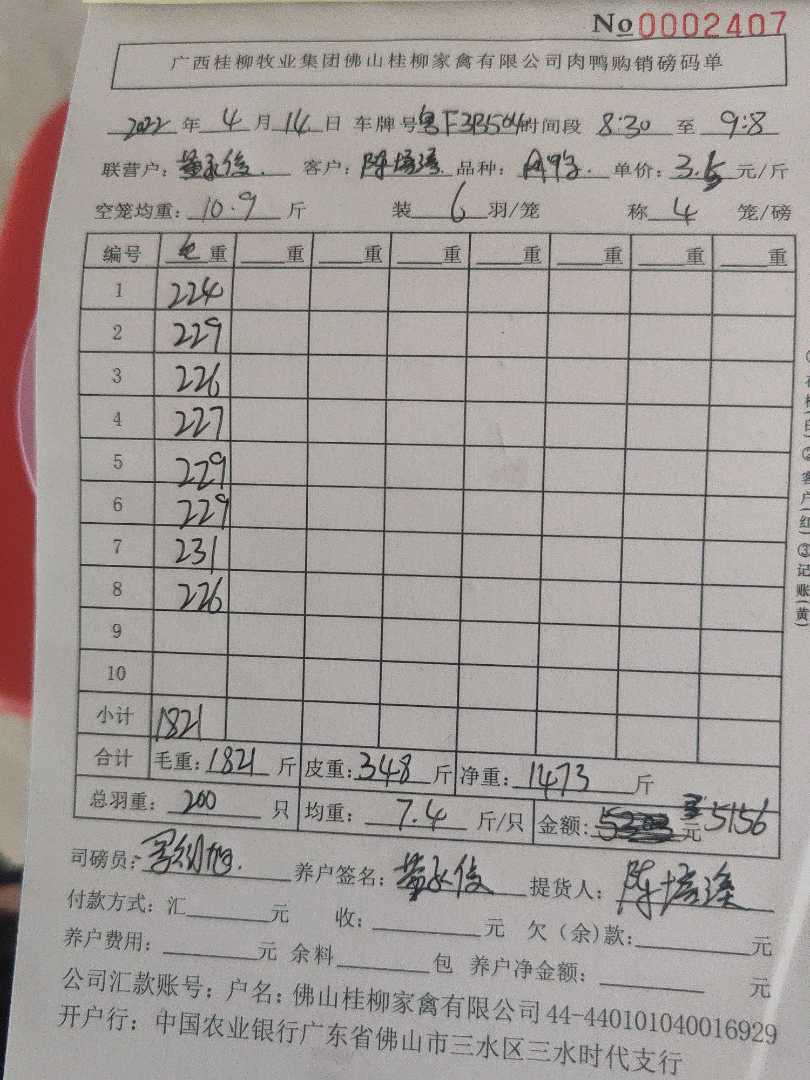 No 0002407
广西桂柳牧业集团佛山桂柳家禽有限公司肉鸭购销磅码单
2022 年 4 月 14 日 车牌号 粤F3B504 时间段 8:30 至 9:8
联营户: 黄永俊 客户: 陈 品种: 单价: 3.5 元/斤
空笼均重: 10.9 斤 装 6 羽/笼 称 4 笼/磅
编号 毛重 重 重 重 重 重 重 重
1 224
2 229
3 226
4 227
5 229
6 229
7 231
8 226
9
10
小计 1821
合计 毛重: 1821 斤 皮重: 348 斤 净重: 1473 斤
总羽重: 200 只 均重: 7.4 斤/只 金额: 元 5156
司磅员: 养户签名: 黄永俊 提货人: 陈
付款方式: 汇 元 收: 元 欠(余)款: 元
养户费用: 元 余料 包 养户净金额: 元
公司汇款账号: 户名: 佛山桂柳家禽有限公司 44-440101040016929
开户行: 中国农业银行广东省佛山市三水区三水时代支行
户(红)③记账(黄)